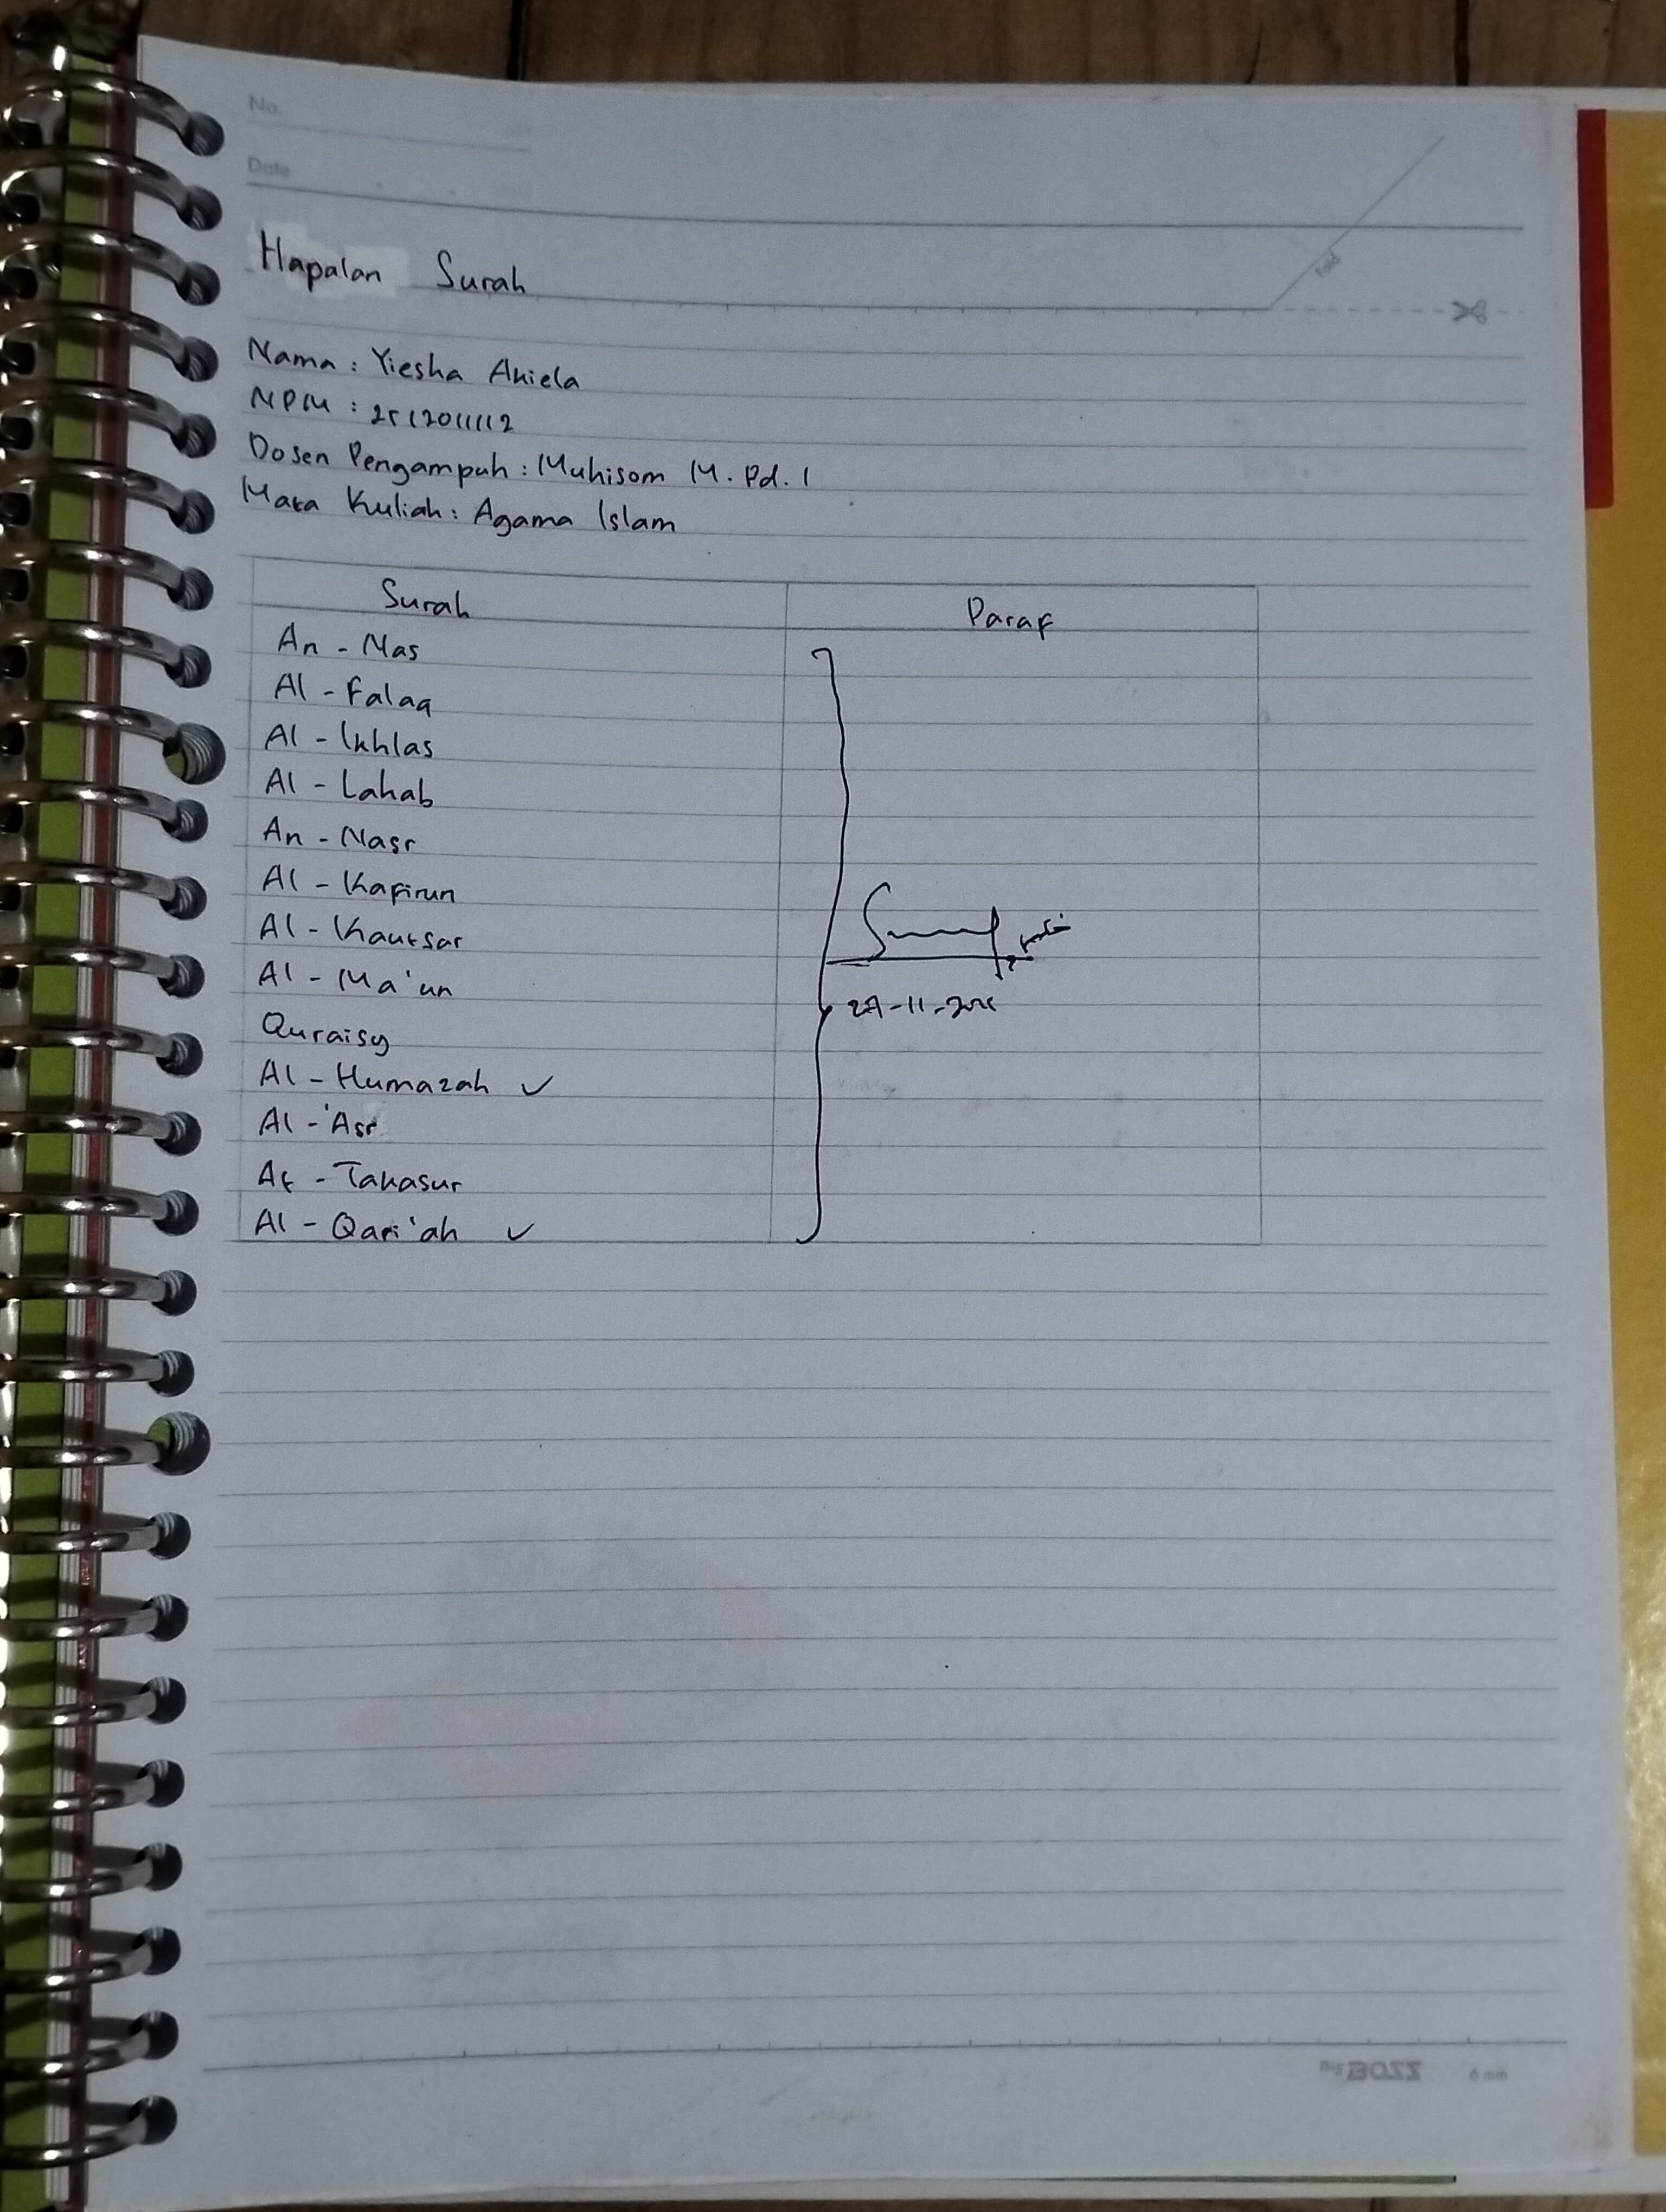 No.
Date
fold
Hapalan Surah
Nama : Yiesha Akiela
NPM : 2512011112
Dosen Pengampuh : Muhisom M. Pd. I
Mata Kuliah : Agama Islam
Surah Paraf
An - Nas
Al - Falaq
Al - Ikhlas
Al - Lahab
An - Nasr
Al - Kafirun
Al - Kautsar
Al - Ma'un
27-11-2025
Quraisy
Al - Humazah ✓
Al - 'Asr
At - Takasur
Al - Qari'ah ✓
BIG BOSS 6 mm